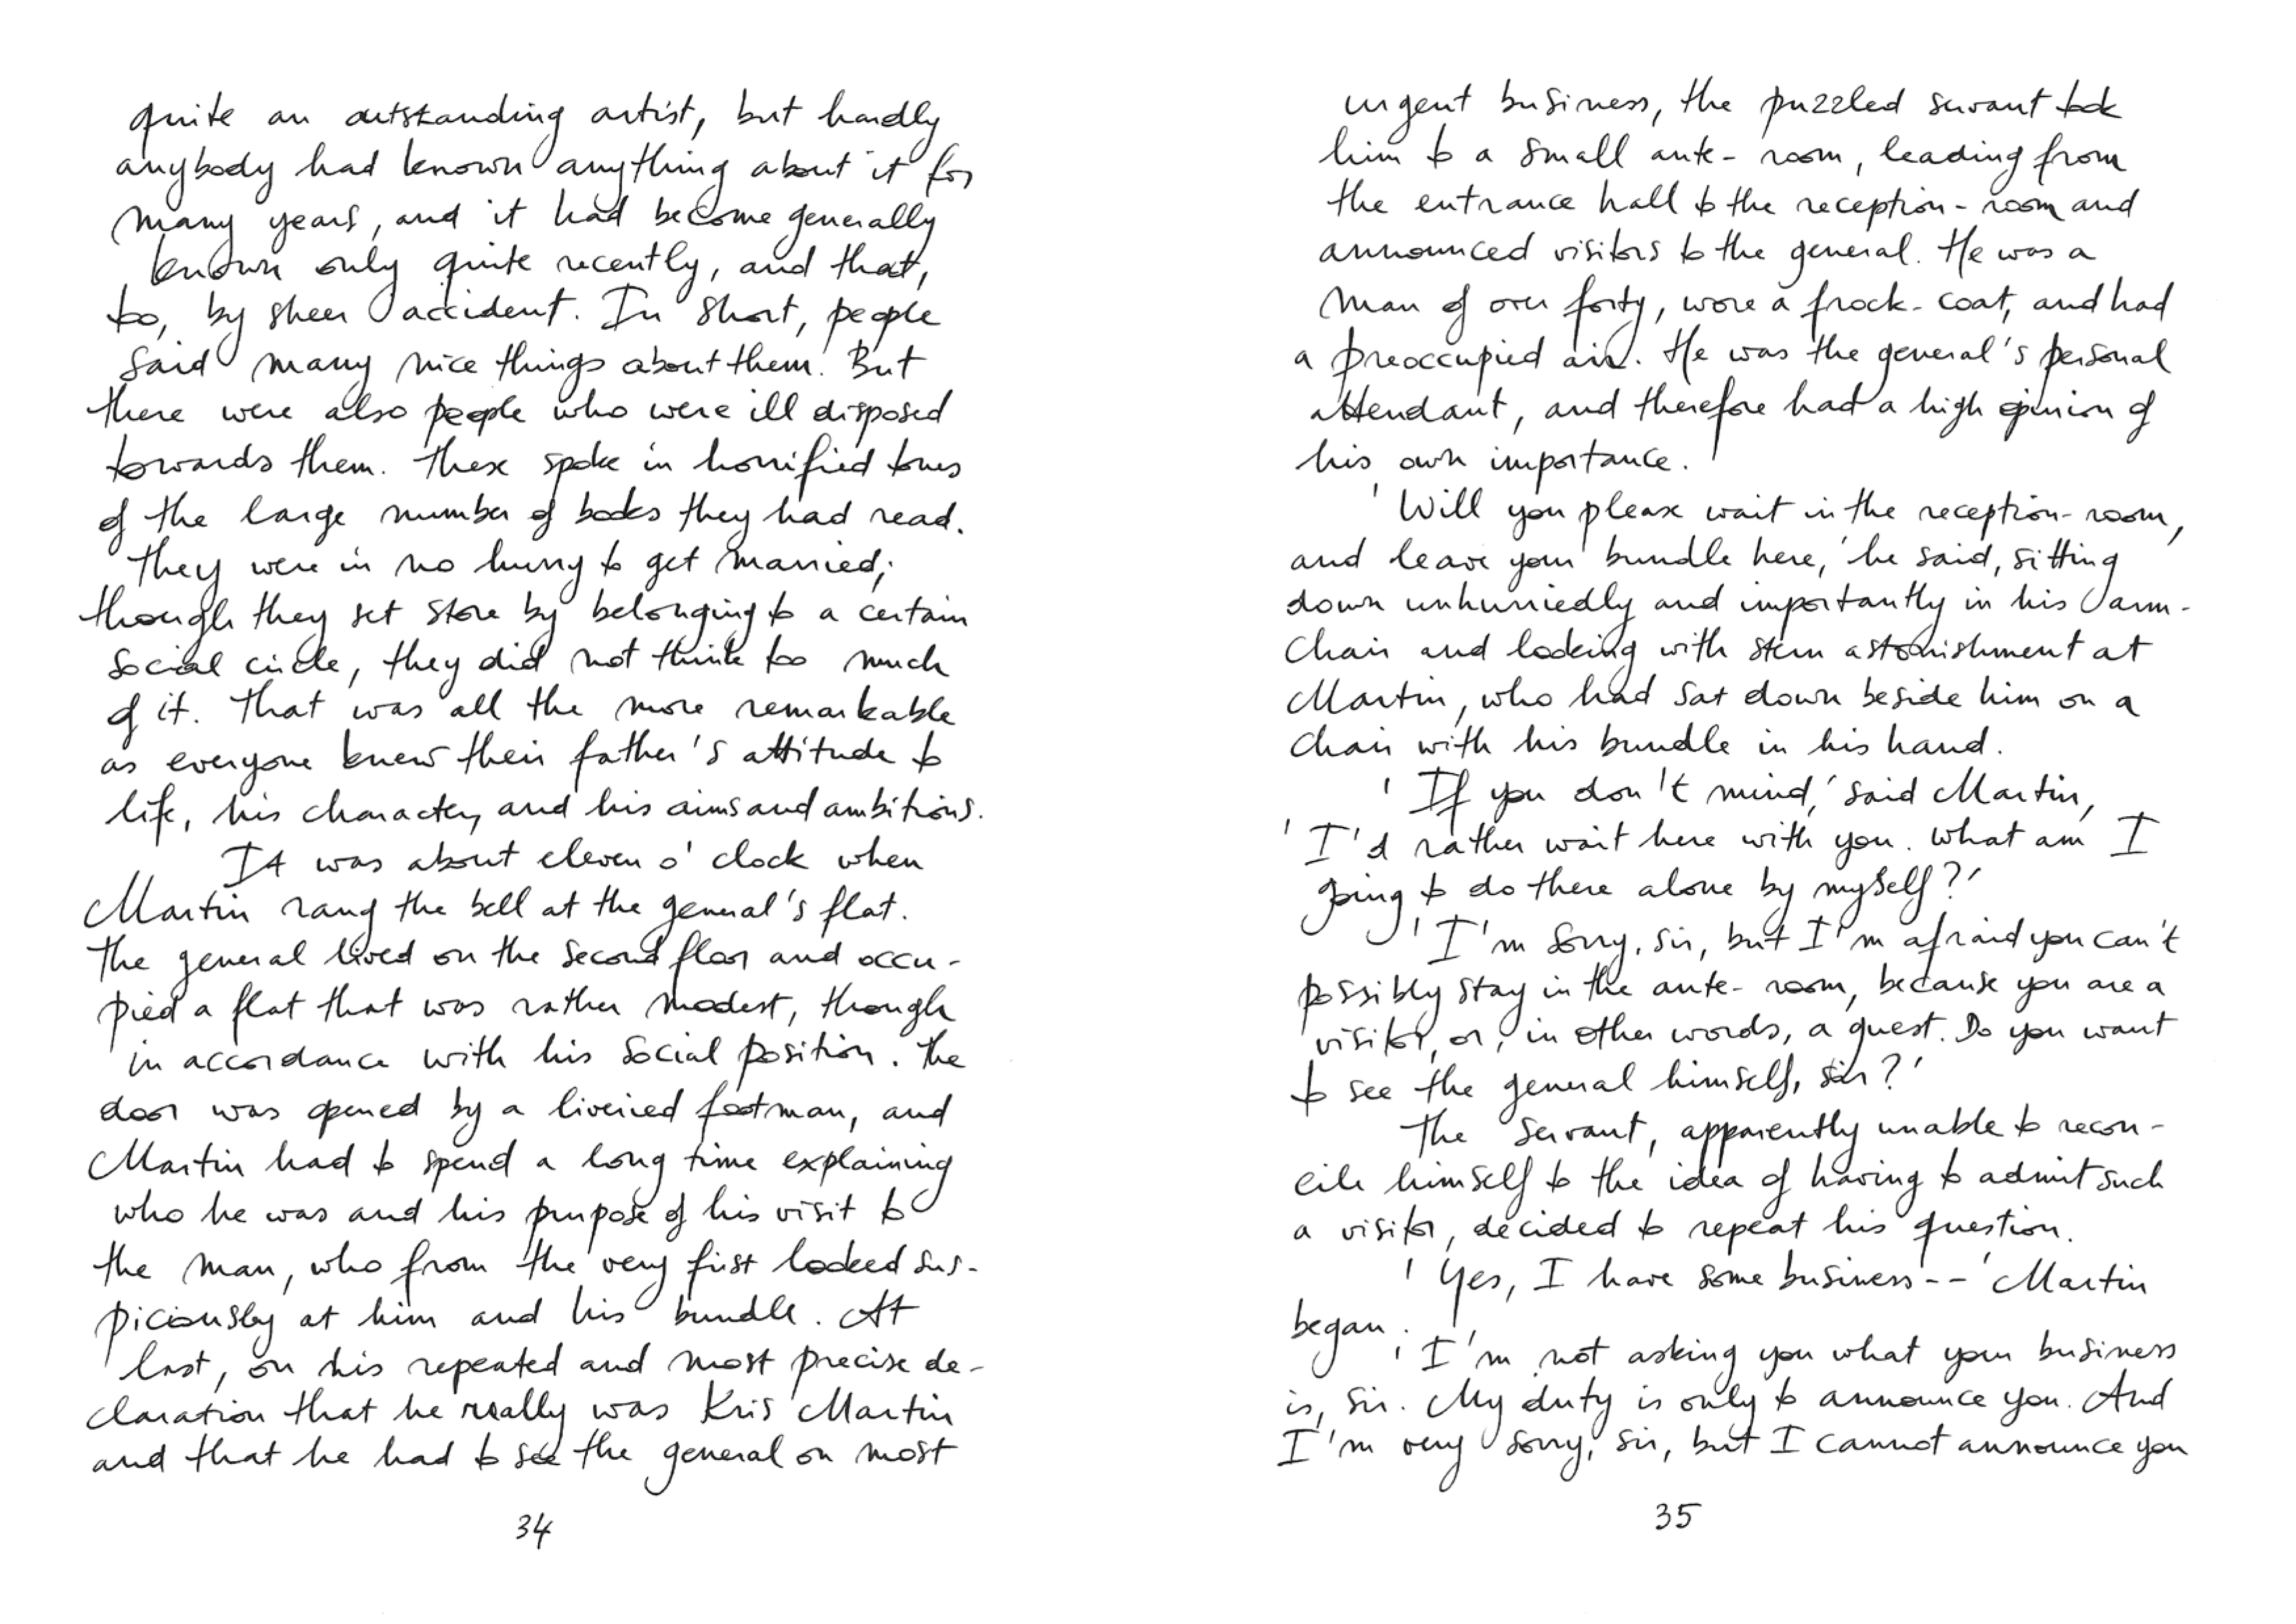 quite an outstanding artist, but hardly
anybody had known anything about it for
many years, and it had become generally
known only quite recently, and that,
too, by sheer accident. In short, people
said many nice things about them. But
there were also people who were ill disposed
towards them. These spoke in horrified tones
of the large number of books they had read.
They were in no hurry to get married;
though they set store by belonging to a certain
social circle, they did not think too much
of it. That was all the more remarkable
as everyone knew their father's attitude to
life, his character, and his aims and ambitions.
It was about eleven o'clock when
Martin rang the bell at the general's flat.
The general lived on the second floor and occu-
pied a flat that was rather modest, though
in accordance with his social position. The
door was opened by a liveried footman, and
Martin had to spend a long time explaining
who he was and his purpose of his visit to
the man, who from the very first looked sus-
piciously at him and his bundle. At
last, on his repeated and most precise de-
claration that he really was Kris Martin
and that he had to see the general on most
34
urgent business, the puzzled servant took
him to a small ante-room, leading from
the entrance hall to the reception-room and
announced visitors to the general. He was a
man of over forty, wore a frock-coat, and had
a preoccupied air. He was the general's personal
attendant, and therefore had a high opinion of
his own importance.
'Will you please wait in the reception-room,
and leave your bundle here,' he said, sitting
down unhurriedly and importantly in his arm-
chair and looking with stern astonishment at
Martin, who had sat down beside him on a
chair with his bundle in his hand.
'If you don't mind,' said Martin,
'I'd rather wait here with you. What am I
going to do there alone by myself?'
'I'm sorry, sir, but I'm afraid you can't
possibly stay in the ante-room, because you are a
visitor, or, in other words, a guest. Do you want
to see the general himself, sir?'
The servant, apparently unable to recon-
cile himself to the idea of having to admit such
a visitor, decided to repeat his question.
'Yes, I have some business--' Martin
began.
'I'm not asking you what your business
is, sir. My duty is only to announce you. And
I'm very sorry, sir, but I cannot announce you
35